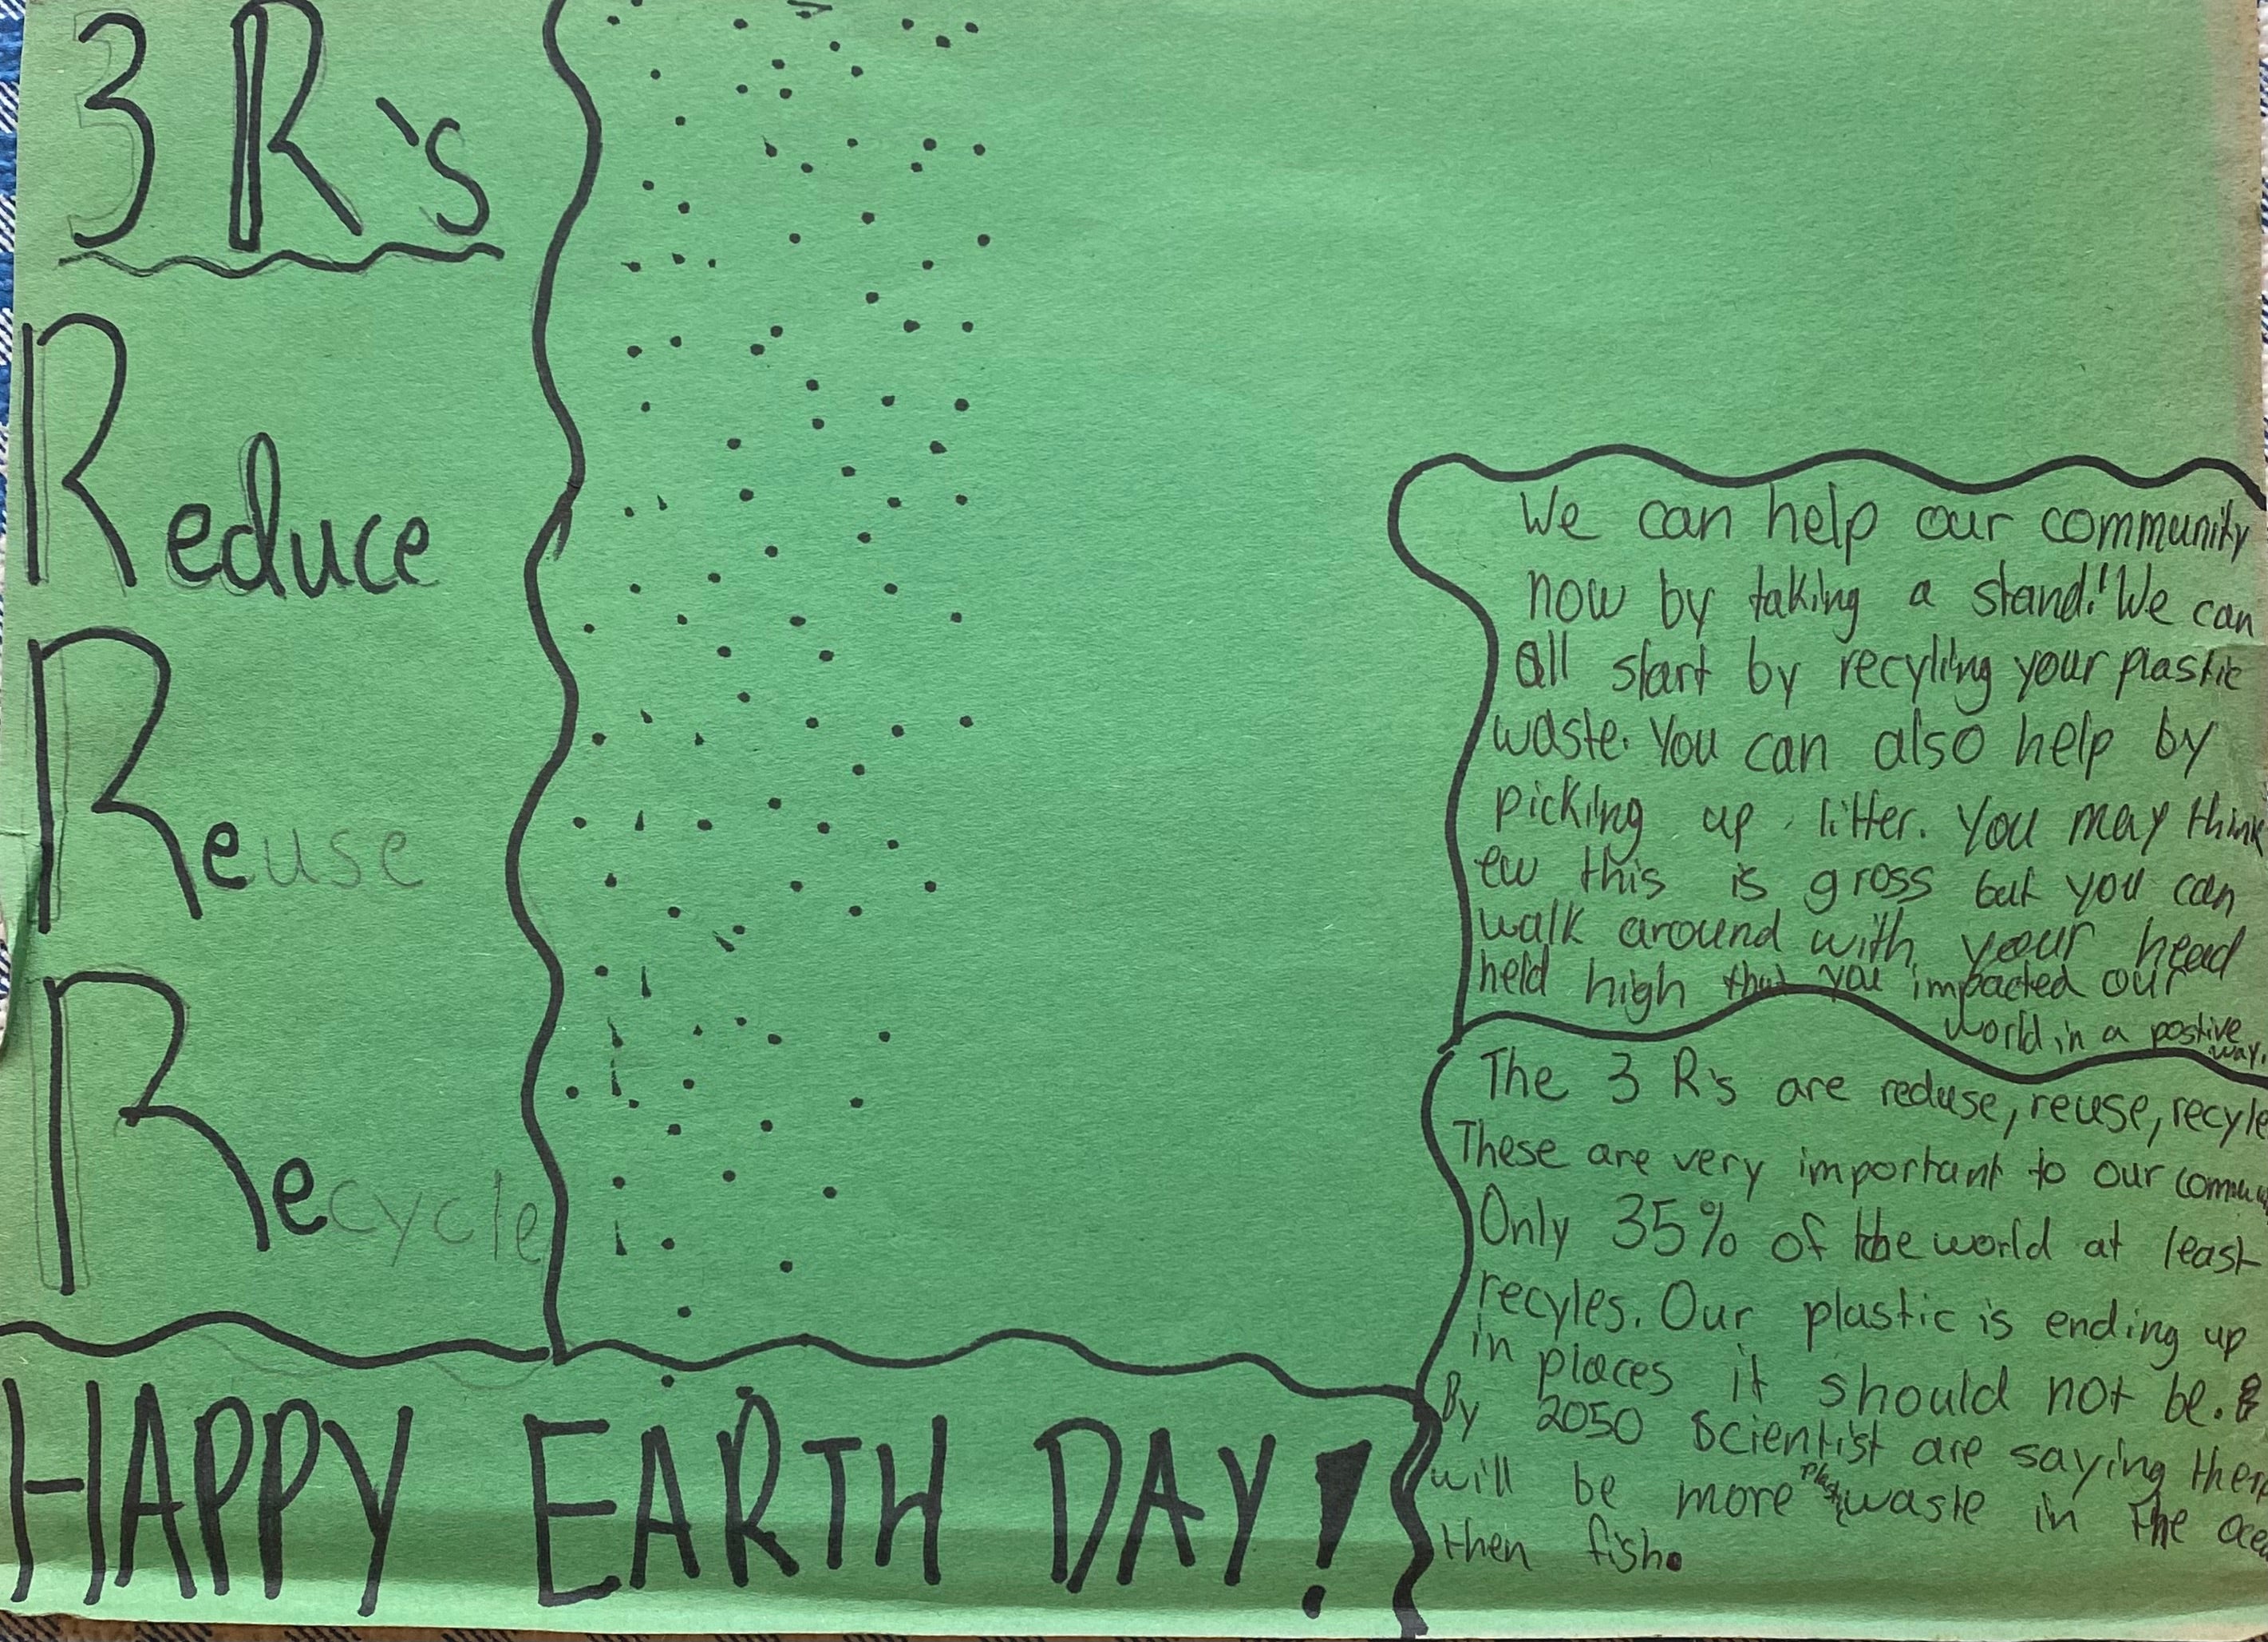 3 R's
Reduce
Reuse
Recycle
HAPPY EARTH DAY!
We can help our community
now by taking a stand! We can
all start by recyling your plastic
waste. You can also help by
picking up litter. You may think
ew this is gross but you can
walk around with your head
held high that you impacted our
world in a postive
way.
The 3 R's are reduse, reuse, recyle
These are very important to our
Only 35% of the world at least
recyles. Our plastic is ending up
in places it should not be.
By 2050 Scientist are saying
will be more plastic waste in the
then fish.